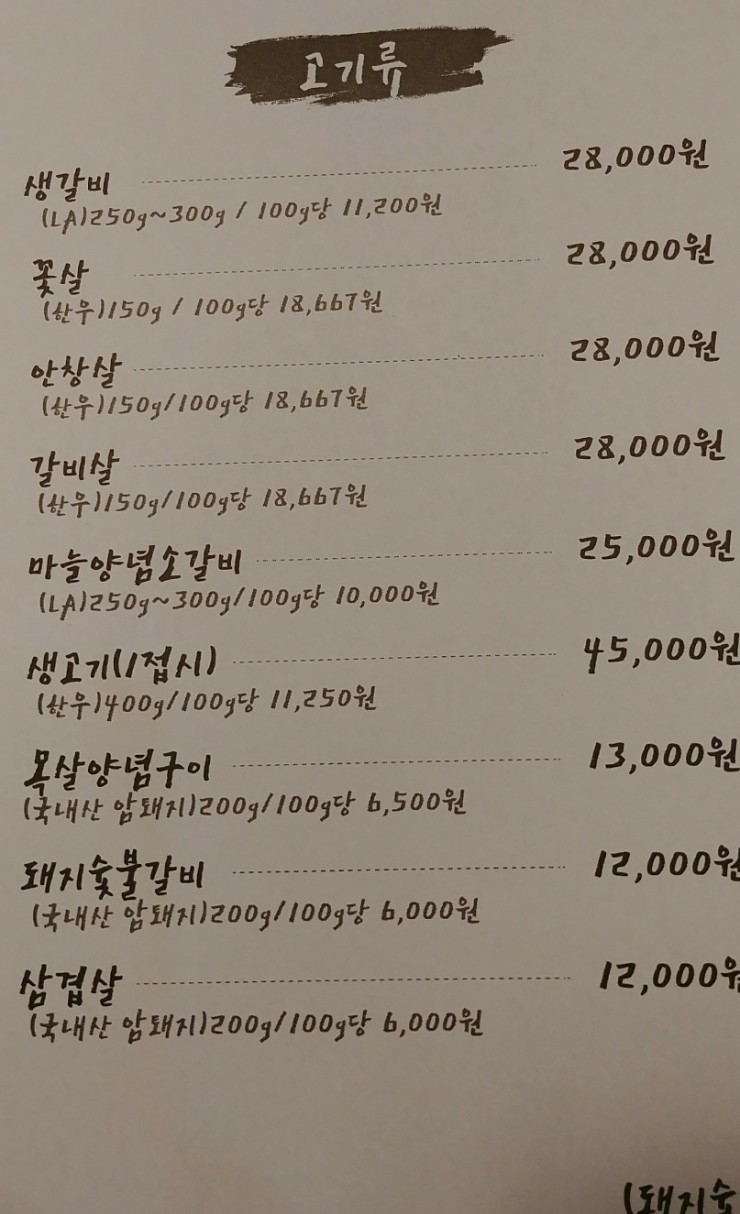 고기류
생갈비 28,000원
(LA)250g~300g / 100g당 11,200원
꽃살 28,000원
(한우)150g / 100g당 18,667원
안창살 28,000원
(한우)150g/100g당 18,667원
갈비살 28,000원
(한우)150g/100g당 18,667원
마늘양념소갈비 25,000원
(LA)250g~300g/100g당 10,000원
생고기(1접시) 45,000원
(한우)400g/100g당 11,250원
목살양념구이 13,000원
(국내산 암돼지)200g/100g당 6,500원
돼지숯불갈비 12,000원
(국내산 암돼지)200g/100g당 6,000원
삼겹살 12,000원
(국내산 암돼지)200g/100g당 6,000원
(돼지숯